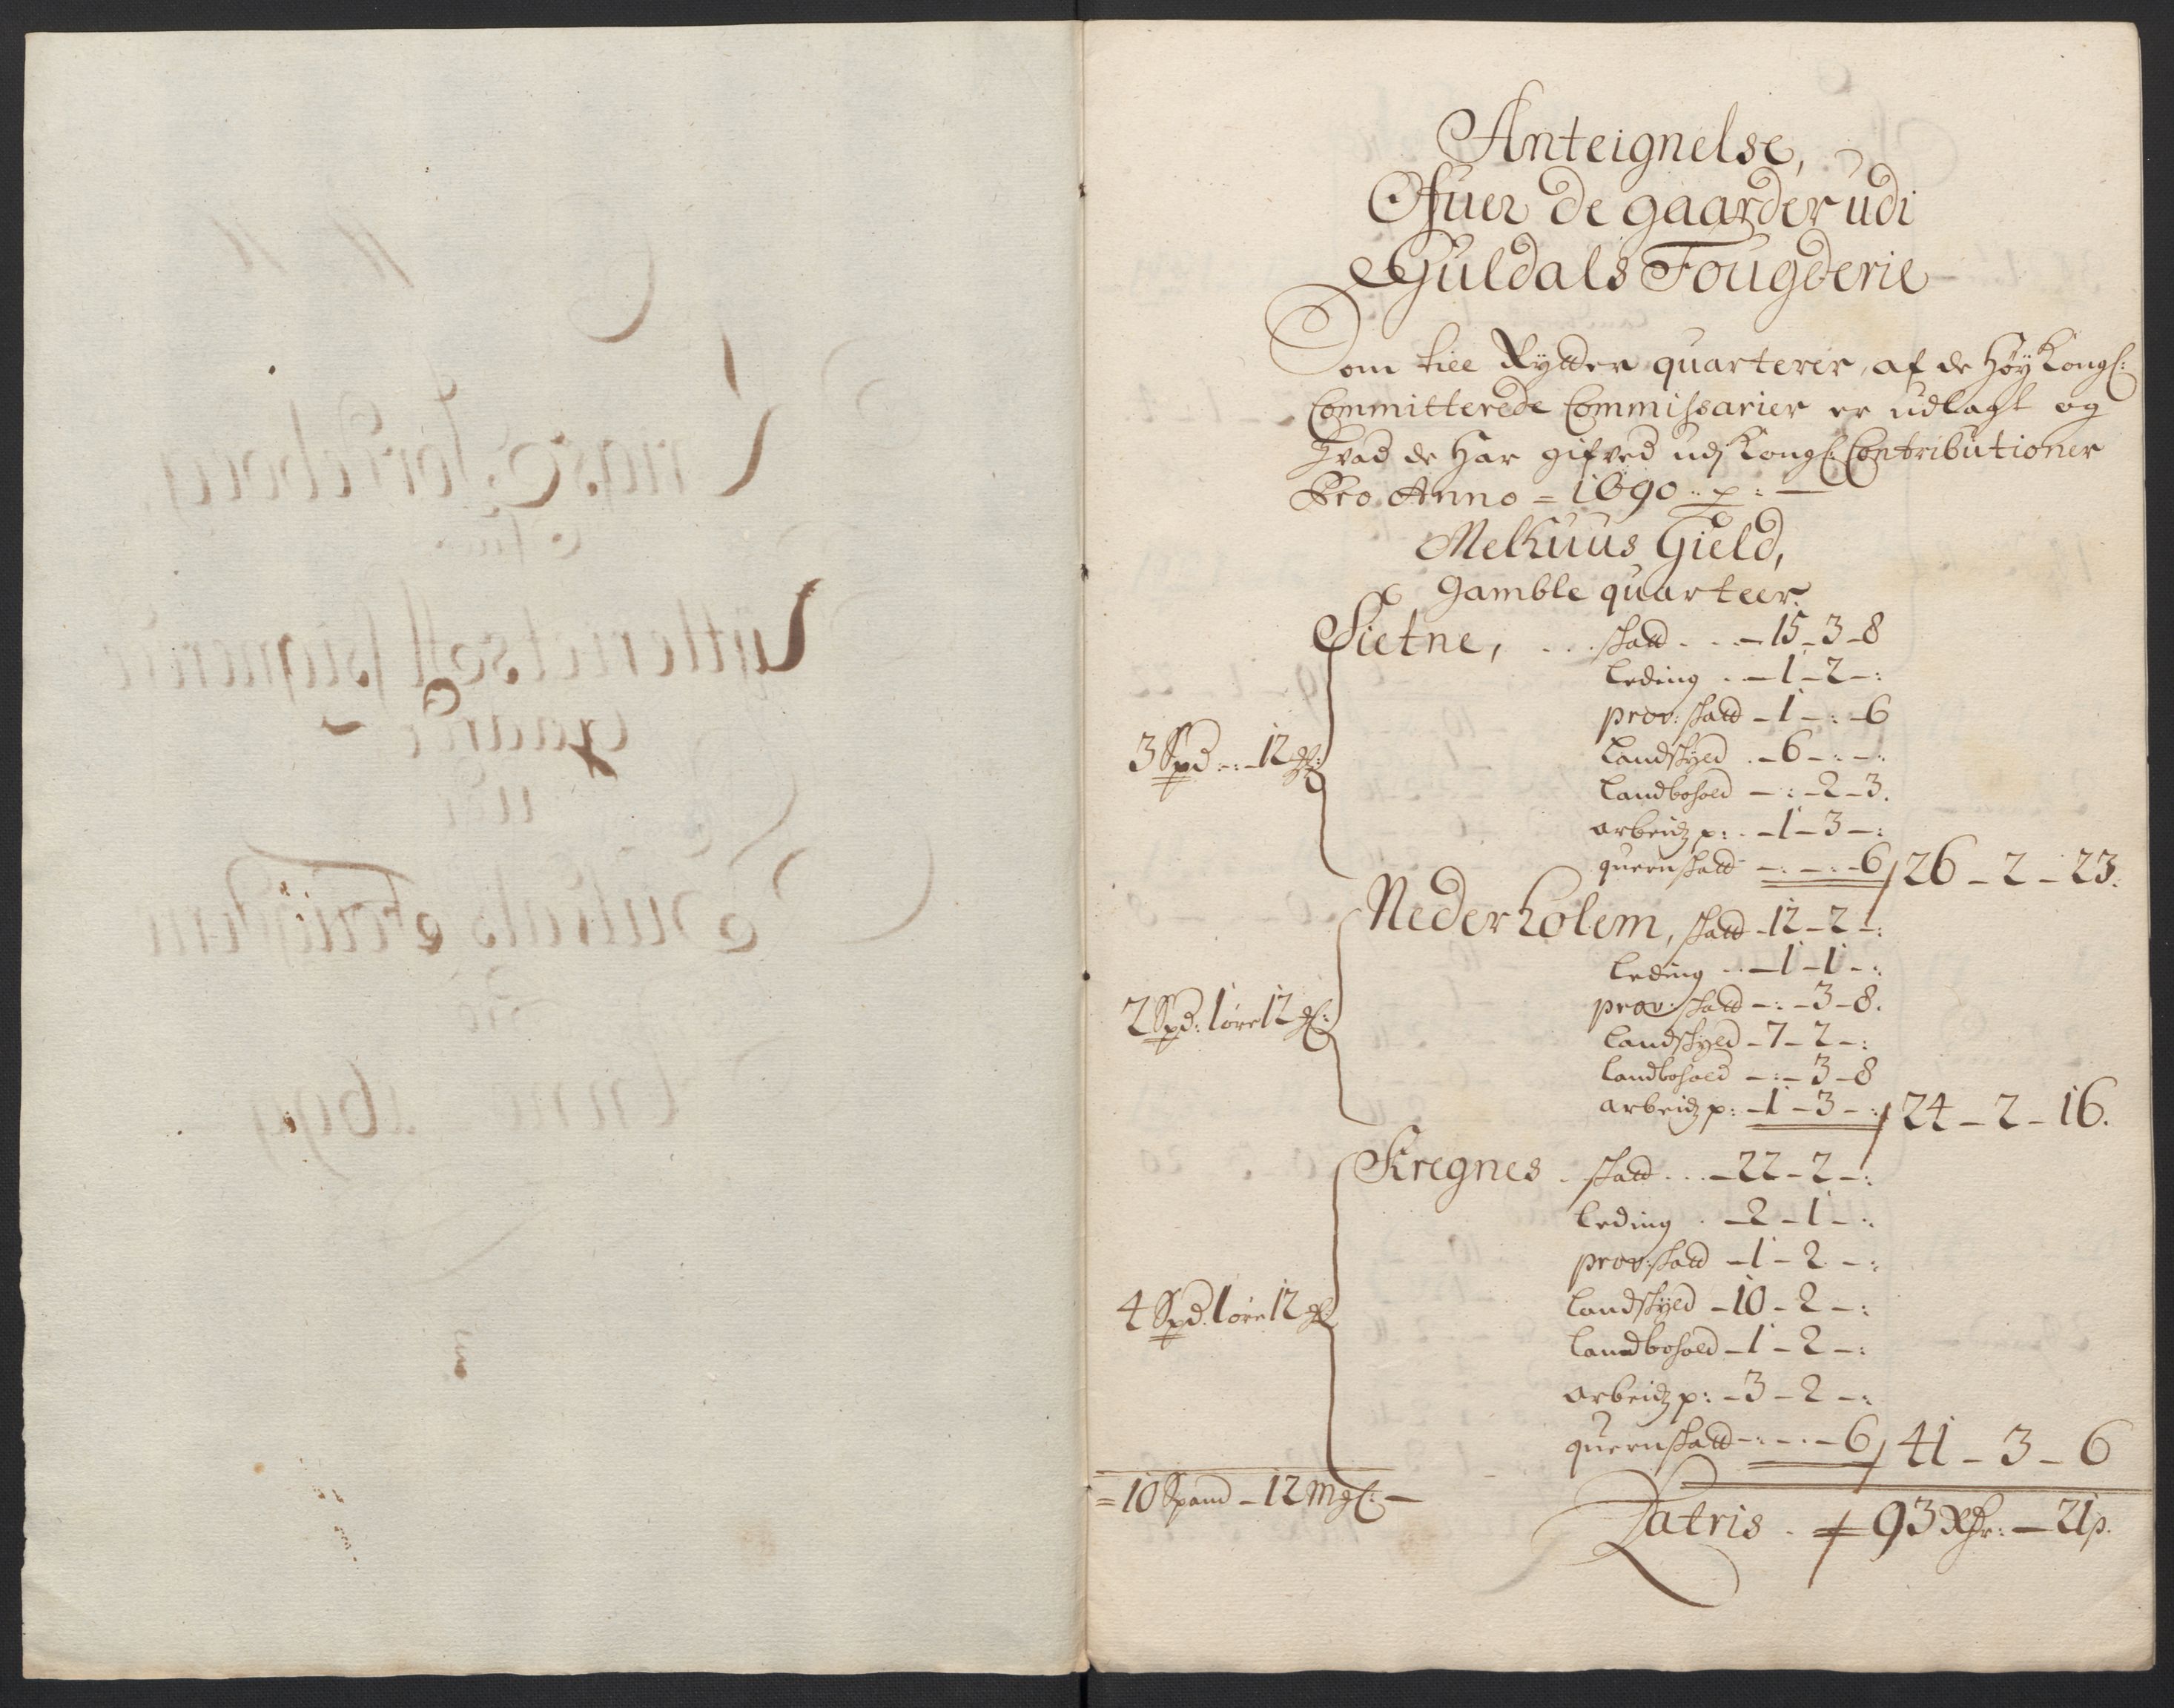 Anteignelse,
Ofuer de gaarder udi
Guldals Fougderie
Som till Rytter quarterer, af de Høy Kongl:
Committerede Commissarier er udlagt og
Hvad de Har gifved udj Kongl: Contributioner
Pro Anno = 1690 ..
Melhuus Gield,
Gamble quarteer.
Sietne, . . . skatt . . . – 15 – 3 – 8
Leding . . – 1 – 2 – :
prov: skatt – 1 – : – 6
Landskyld . – 6 – : – :
Landbohold – : – 2 – 3.
3 Spd – : – 12
arbeidz p: . – 1 – 3 – :
quernskatt – : – : – 6 / 26 – 2 – 23.
Nederholem, skatt – 12 – 2 – :
Leding . . – 1 – 1 – :
prov: skatt – : – 3 – 8.
2 Spd: 1 øre 12
Landskyld – 7 – 2 – :
Landbohold – : – 3 – 8
arbeidz p: – 1 – 3 – : / 24 – 2 – 16.
Kregnes . skatt . . . – 22 – 2 – :
Leding . – 2 – 1 – :
prov: skatt – 1 – 2 – :
4 Spd. 1 øre 12
Landskyld – 10 – 2 – :
Landbohold – 1 – 2 – :
arbeidz p: – 3 – 2 – :
quernskatt – : – : – 6 / 41 – 3 – 6
= 10 Spand – 12 Mgl: –
Latris . 93 Rdr: – 21 s.